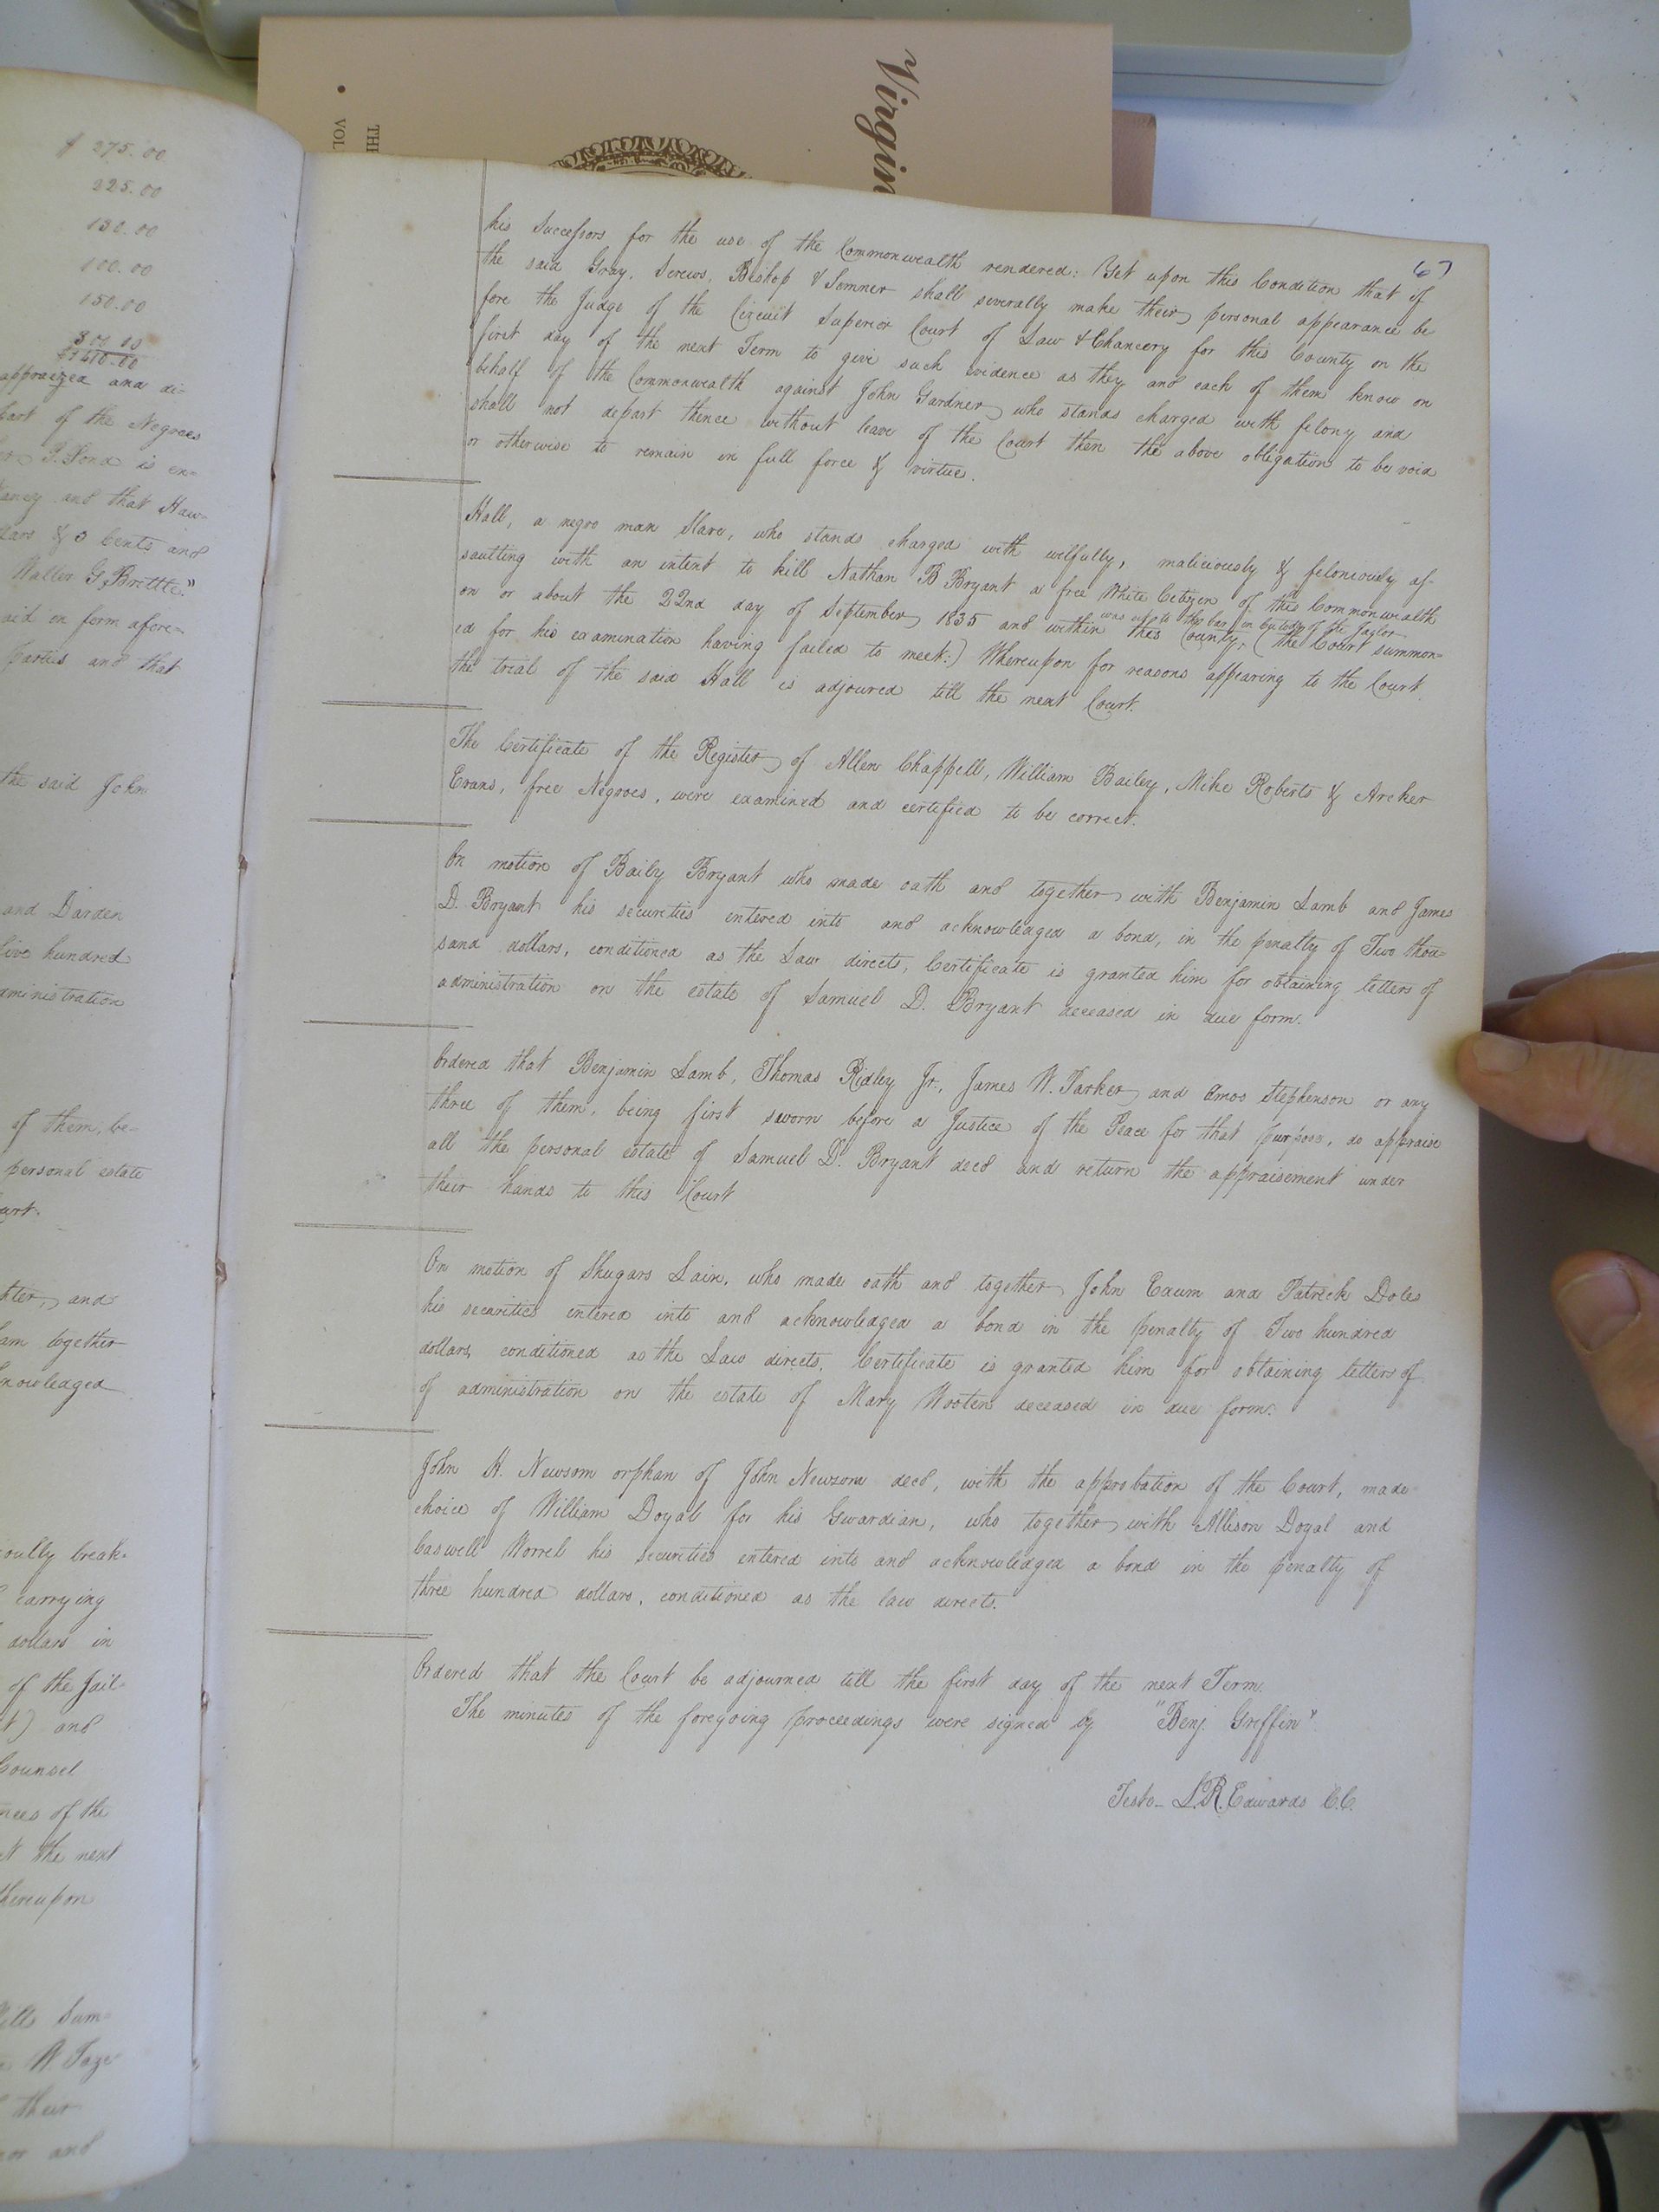 Virgin
THE
VOL
$ 275.00
225.00
150.00
100.00
150.00
appraized and di-
part of the Negroes
Pond is en-
and that Haw-
& 3 Cents and
Waller G. Brittle"
aid in form afore-
parties and that
the said John
and Darden
five hundred
administration
of them, be-
personal estate
and
together
knowledged
break-
carrying
dollars in
of the Jail-
and
Counsel
of the
the next
thereupon
Sam-
their
and
67
his Successors for the use of the Commonwealth rendered: Yet upon this Condition that if
the said Gray, Screws, Bishop & Somner shall severally make their personal appearance be
fore the Judge of the Circuit Superior Court of Law & Chancery for this County on the
first day of the next Term to give such evidence as they and each of them know on
behalf of the Commonwealth against John Gardner, who stands charged with felony and
shall not depart thence without leave of the Court then the above obligation to be void
or otherwise to remain in full force & virtue.
Hall, a negro man Slave, who stands charged with wilfully, maliciously & feloniously as-
saulting with an intent to kill Nathan B Bryant a free White Citizen of this Commonwealth
on or about the 22nd day of September 1835 and within this County, was set to the bar in custody of the Jaylor (the Court summon-
ed for his examination having failed to meet:) Whereupon for reasons appearing to the Court
the trial of the said Hall is adjourned till the next Court.
The Certificate of the Register of Allen Chappell, William Bailey, Mike Roberts & Archer
Evans, free Negroes, were examined and certified to be correct.
On motion of Baily Bryant who made oath and together with Benjamin Lamb and James
D. Bryant his securities entered into and acknowledged a bond, in the penalty of Two thou-
sand dollars, conditioned as the Law directs, Certificate is granted him for obtaining letters of
administration on the estate of Samuel D. Bryant deceased in due form.
Ordered that Benjamin Lamb, Thomas Ridley Jr., James W. Parker and Amos Stephenson or any
three of them, being first sworn before a Justice of the Peace for that purpose, do appraise
all the personal estate of Samuel D. Bryant decd and return the appraisement under
their hands to this Court
On motion of Shugars Lain, who made oath and together John Exum and Patrick Doles
his securities entered into and acknowledged a bond in the penalty of Two hundred
dollars, conditioned as the Law directs, Certificate is granted him for obtaining letters of
of administration on the estate of Mary Wooten deceased in due form.
John H. Newsom orphan of John Newsom decd, with the approbation of the Court, made
choice of William Doyal for his Guardian, who together with Allison Doyal and
Caswell Worrel his securities entered into and acknowledged a bond in the penalty of
three hundred dollars, conditioned as the law directs.
Ordered that the Court be adjourned till the first day of the next Term.
The minutes of the foregoing proceedings were signed by "Benj. Griffin"
Teste- L.R. Edwards C.C.